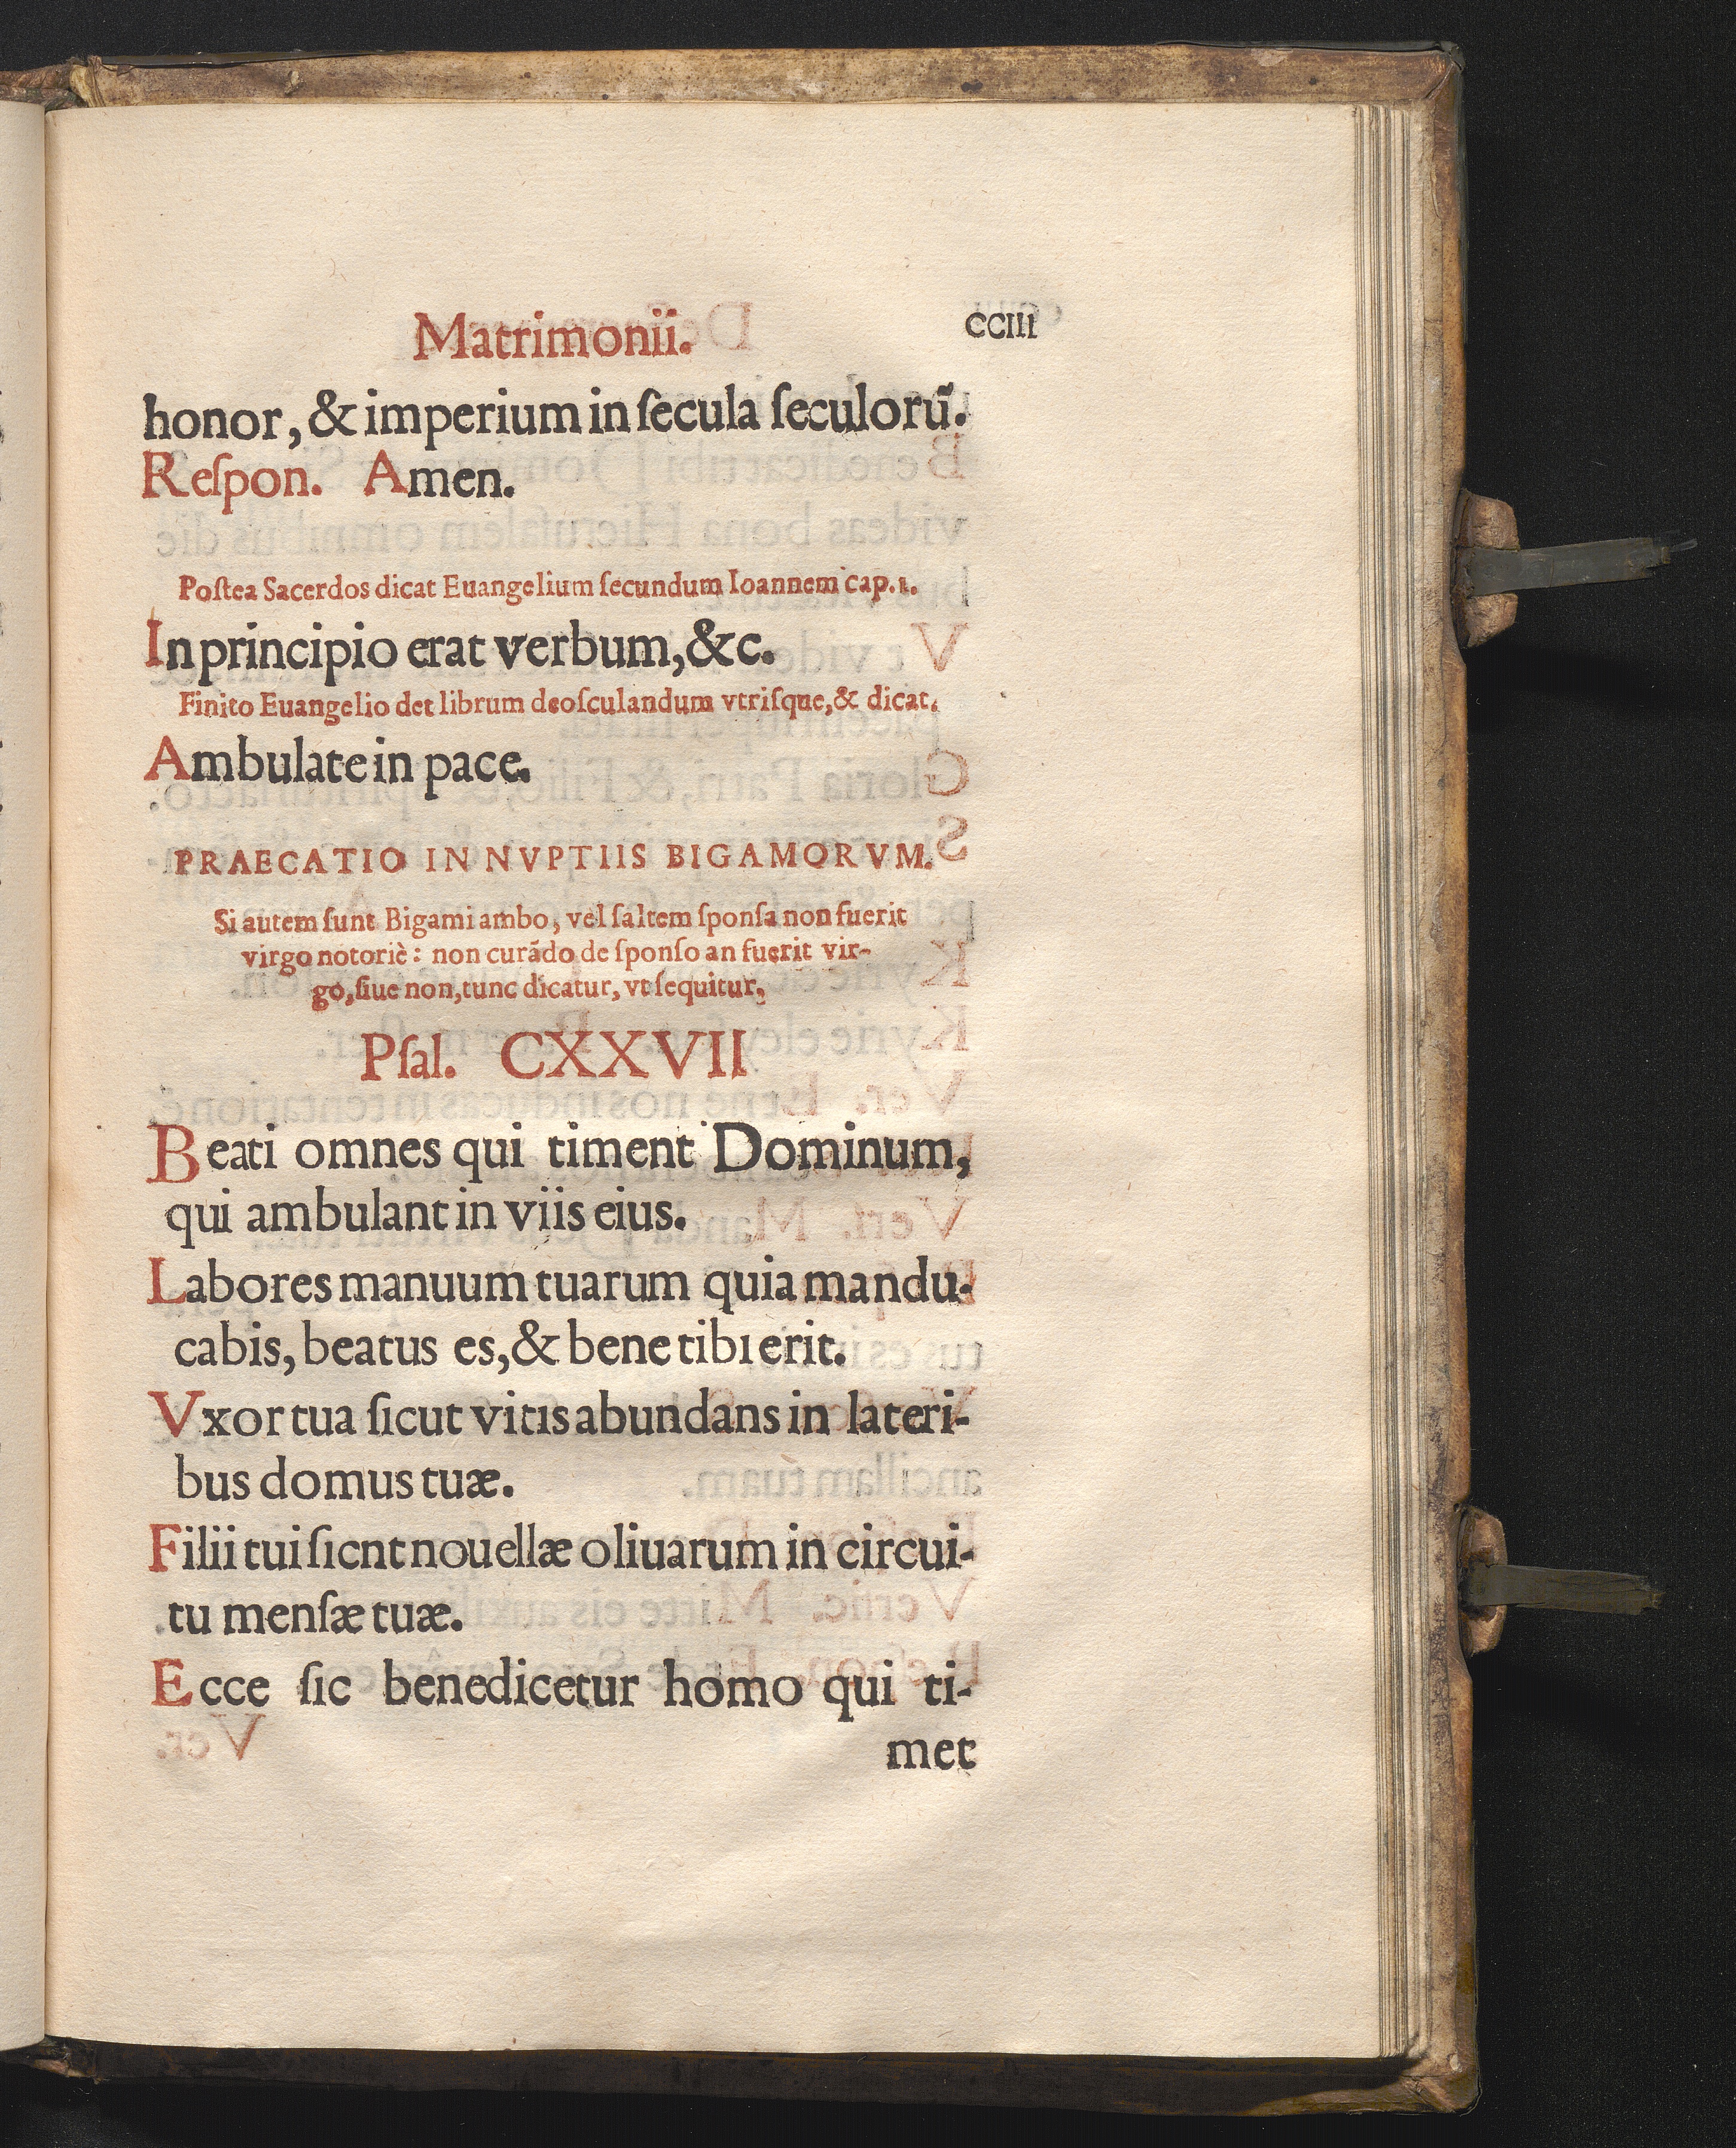 Matrimonii. CCIII
honor, & imperium in ſecula ſeculorũ.
Reſpon. Amen.
Poſtea Sacerdos dicat Euangelium ſecundum Ioannem cap.1.
In principio erat verbum, &c.
Finito Euangelio det librum deoſculandum vtriſque, & dicat.
Ambulate in pace.
PRAECATIO IN NVPTIIS BIGAMORVM.
Si autem ſunt Bigami ambo, vel ſaltem ſponſa non fuerit
virgo notoriè: non curãdo de ſponſo an fuerit vir-
go, ſiue non, tunc dicatur, vt ſequitur,
Pſal. CXXVII
Beati omnes qui timent Dominum,
qui ambulant in viis eius.
Labores manuum tuarum quia mandu-
cabis, beatus es, & bene tibi erit.
Vxor tua ſicut vitis abundans in lateri-
bus domus tuæ.
Filii tui ſicnt nouellæ oliuarum in circui-
tu menſæ tuæ.
Ecce ſic benedicetur homo qui ti-
met